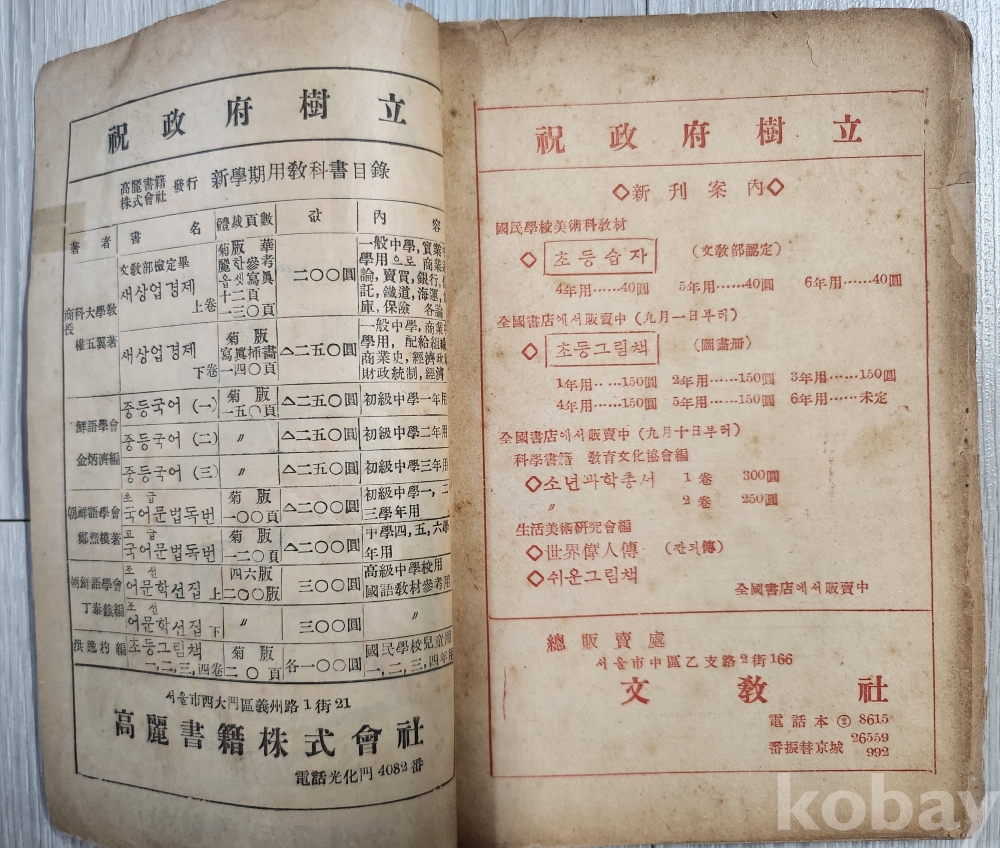 祝政府樹立
高麗書籍
株式會社 發行 新學期用敎科書目錄
著者 書名 體裁頁數 값 內容
商科大學敎授
權五翼著
文敎部檢定畢
새상업경제
上卷
菊版 華
麗한參考
옵셋寫眞
十二頁
一三〇頁
二〇〇圓
一般中學, 實業中
學用으로 商業
論, 賣買, 銀行,
託, 鐵道, 海運,
庫, 保險 各論
새상업경제
下卷
菊版
寫眞揷畵
一四〇頁
△二五〇圓
一般中學, 商業中
學用, 配給組織
商業史, 經濟政
財政統制, 經濟
鮮語學會
金炳濟編
중등국어 (一)
菊版
一五〇頁
△二五〇圓
初級中學一年用
중등국어 (二) 〃 △二五〇圓 初級中學二年用
중등국어 (三) 〃 △二五〇圓 初級中學三年用
朝鮮語學會
鄭烈模著
초급
국어문법독번
菊版
一〇〇頁
△二〇〇圓
初級中學一, 二
三學年用
고급
국어문법독번
菊版
一二〇頁
△二〇〇圓
中學四, 五, 六學
年用
朝鮮語學會
丁泰鎭編
조선
어문학선집 上
四六版
二〇〇版
三〇〇圓
高級中學校用
國語敎材參考用
조선
어문학선집 下
〃
三〇〇圓
〃
洪逸杓編
초등그림책
一, 二, 三, 四卷
菊版
二〇頁
各一〇〇圓
國民學校兒童用
一, 二, 三, 四年用
서울市西大門區義州路1街21
高麗書籍株式會社
電話光化門 4082番
祝政府樹立
◇新刊案內◇
國民學校美術科敎材
◇ 초등습자 (文敎部認定)
4年用……40圓 5年用……40圓 6年用……40圓
全國書店에서販賣中 (九月一日부터)
◇ 초등그림책 (圖畵册)
1年用……150圓 2年用……150圓 3年用……150圓
4年用……150圓 5年用……150圓 6年用……未定
全國書店에서販賣中 (九月十日부터)
科學書籍 敎育文化協會編
◇소년과학총서 1卷 300圓
〃 2卷 250圓
生活美術硏究會編
◇世界偉人傳 (깐듸傳)
◇쉬운그림책
全國書店에서販賣中
總販賣處
서울市中區乙支路2街166
文敎社
電話本② 8615
26559
番振替京城 992
kobay